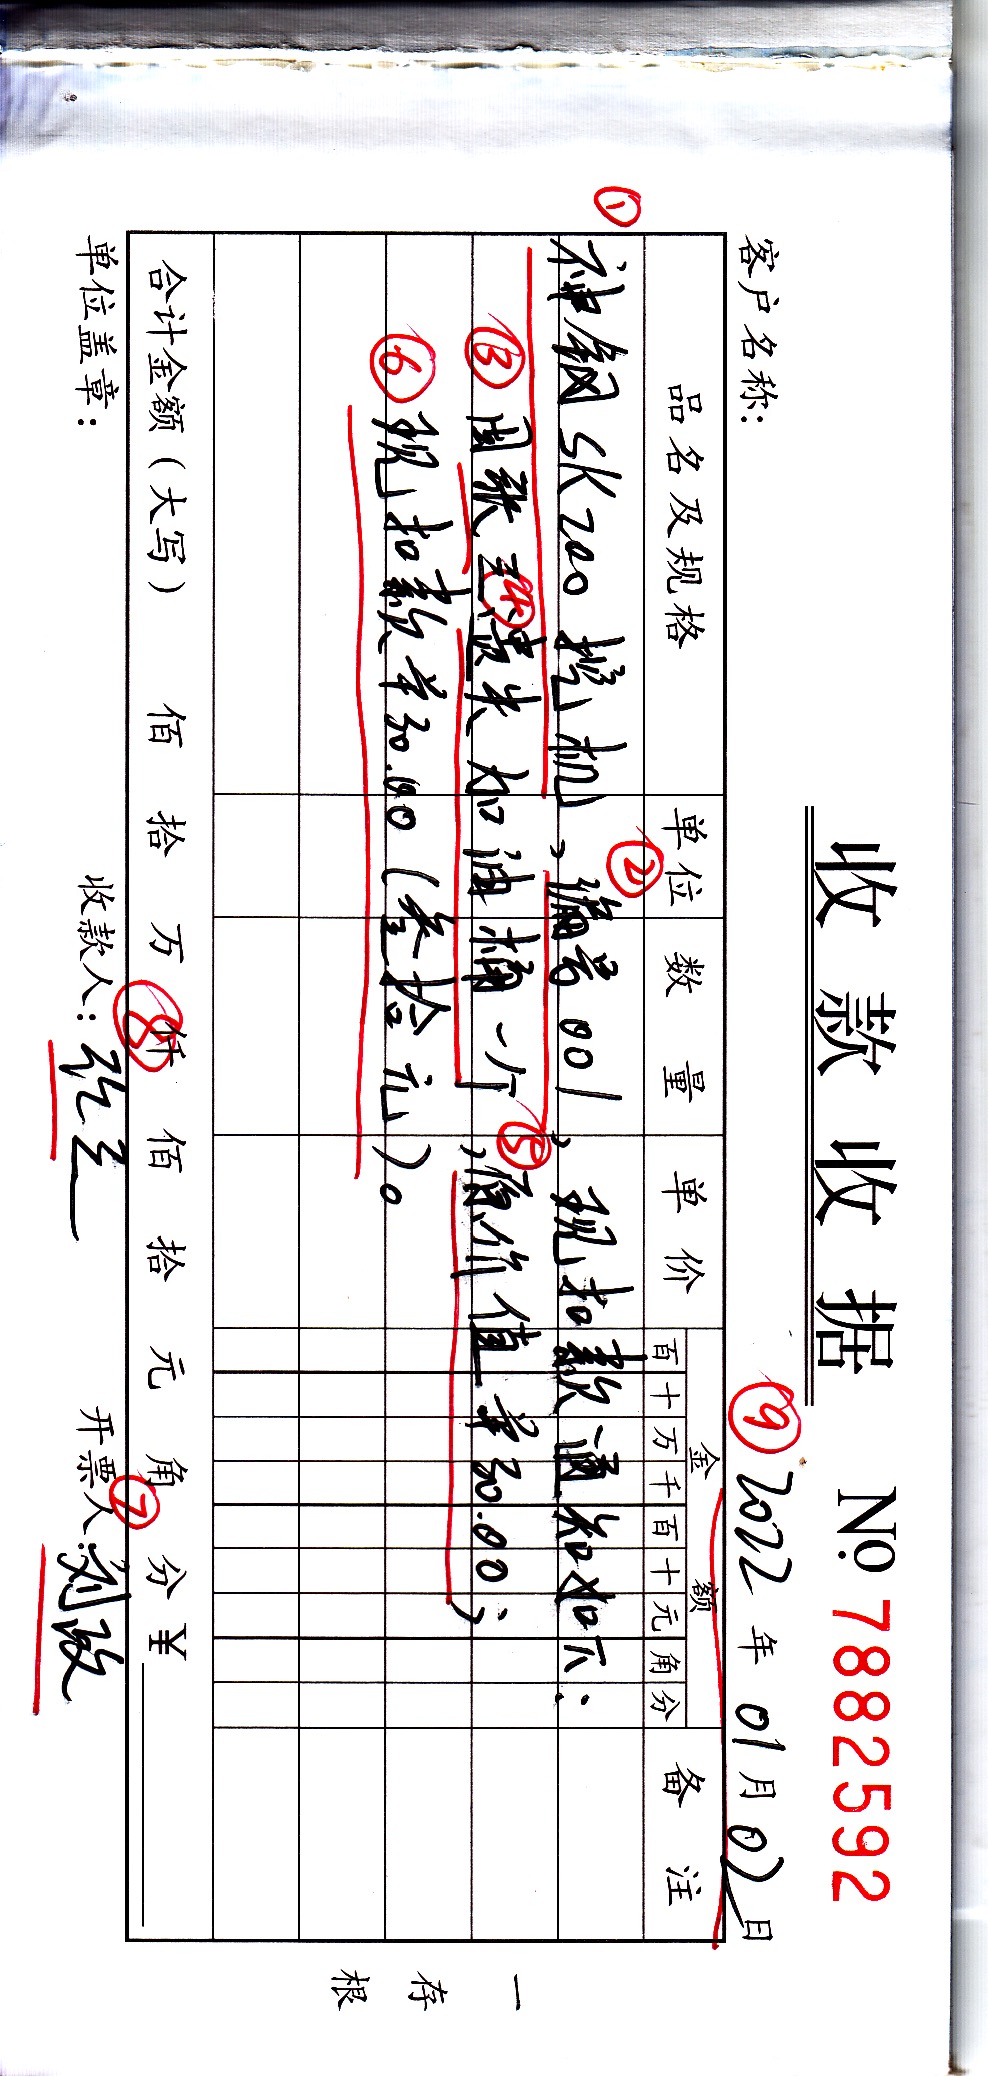 收款收据 № 7882592
客户名称: ⑨ 2022 年 01 月 02 日
品名及规格 单位 数量 单价 金额 备注
百 十 万 千 百 十 元 角 分
① 神钢SK200挖机、② 编号001,现扣款通知如下:
③ 因张三 ④ 遗失加油桶一个,⑤ 原价值¥30.00;
⑥ 现扣款¥30.00(叁拾元)。
合计金额(大写) 佰 拾 万 仟 佰 拾 元 角 分 ¥
单位盖章: 收款人: ⑧ 张三 开票人: ⑦ 刘政
一存根